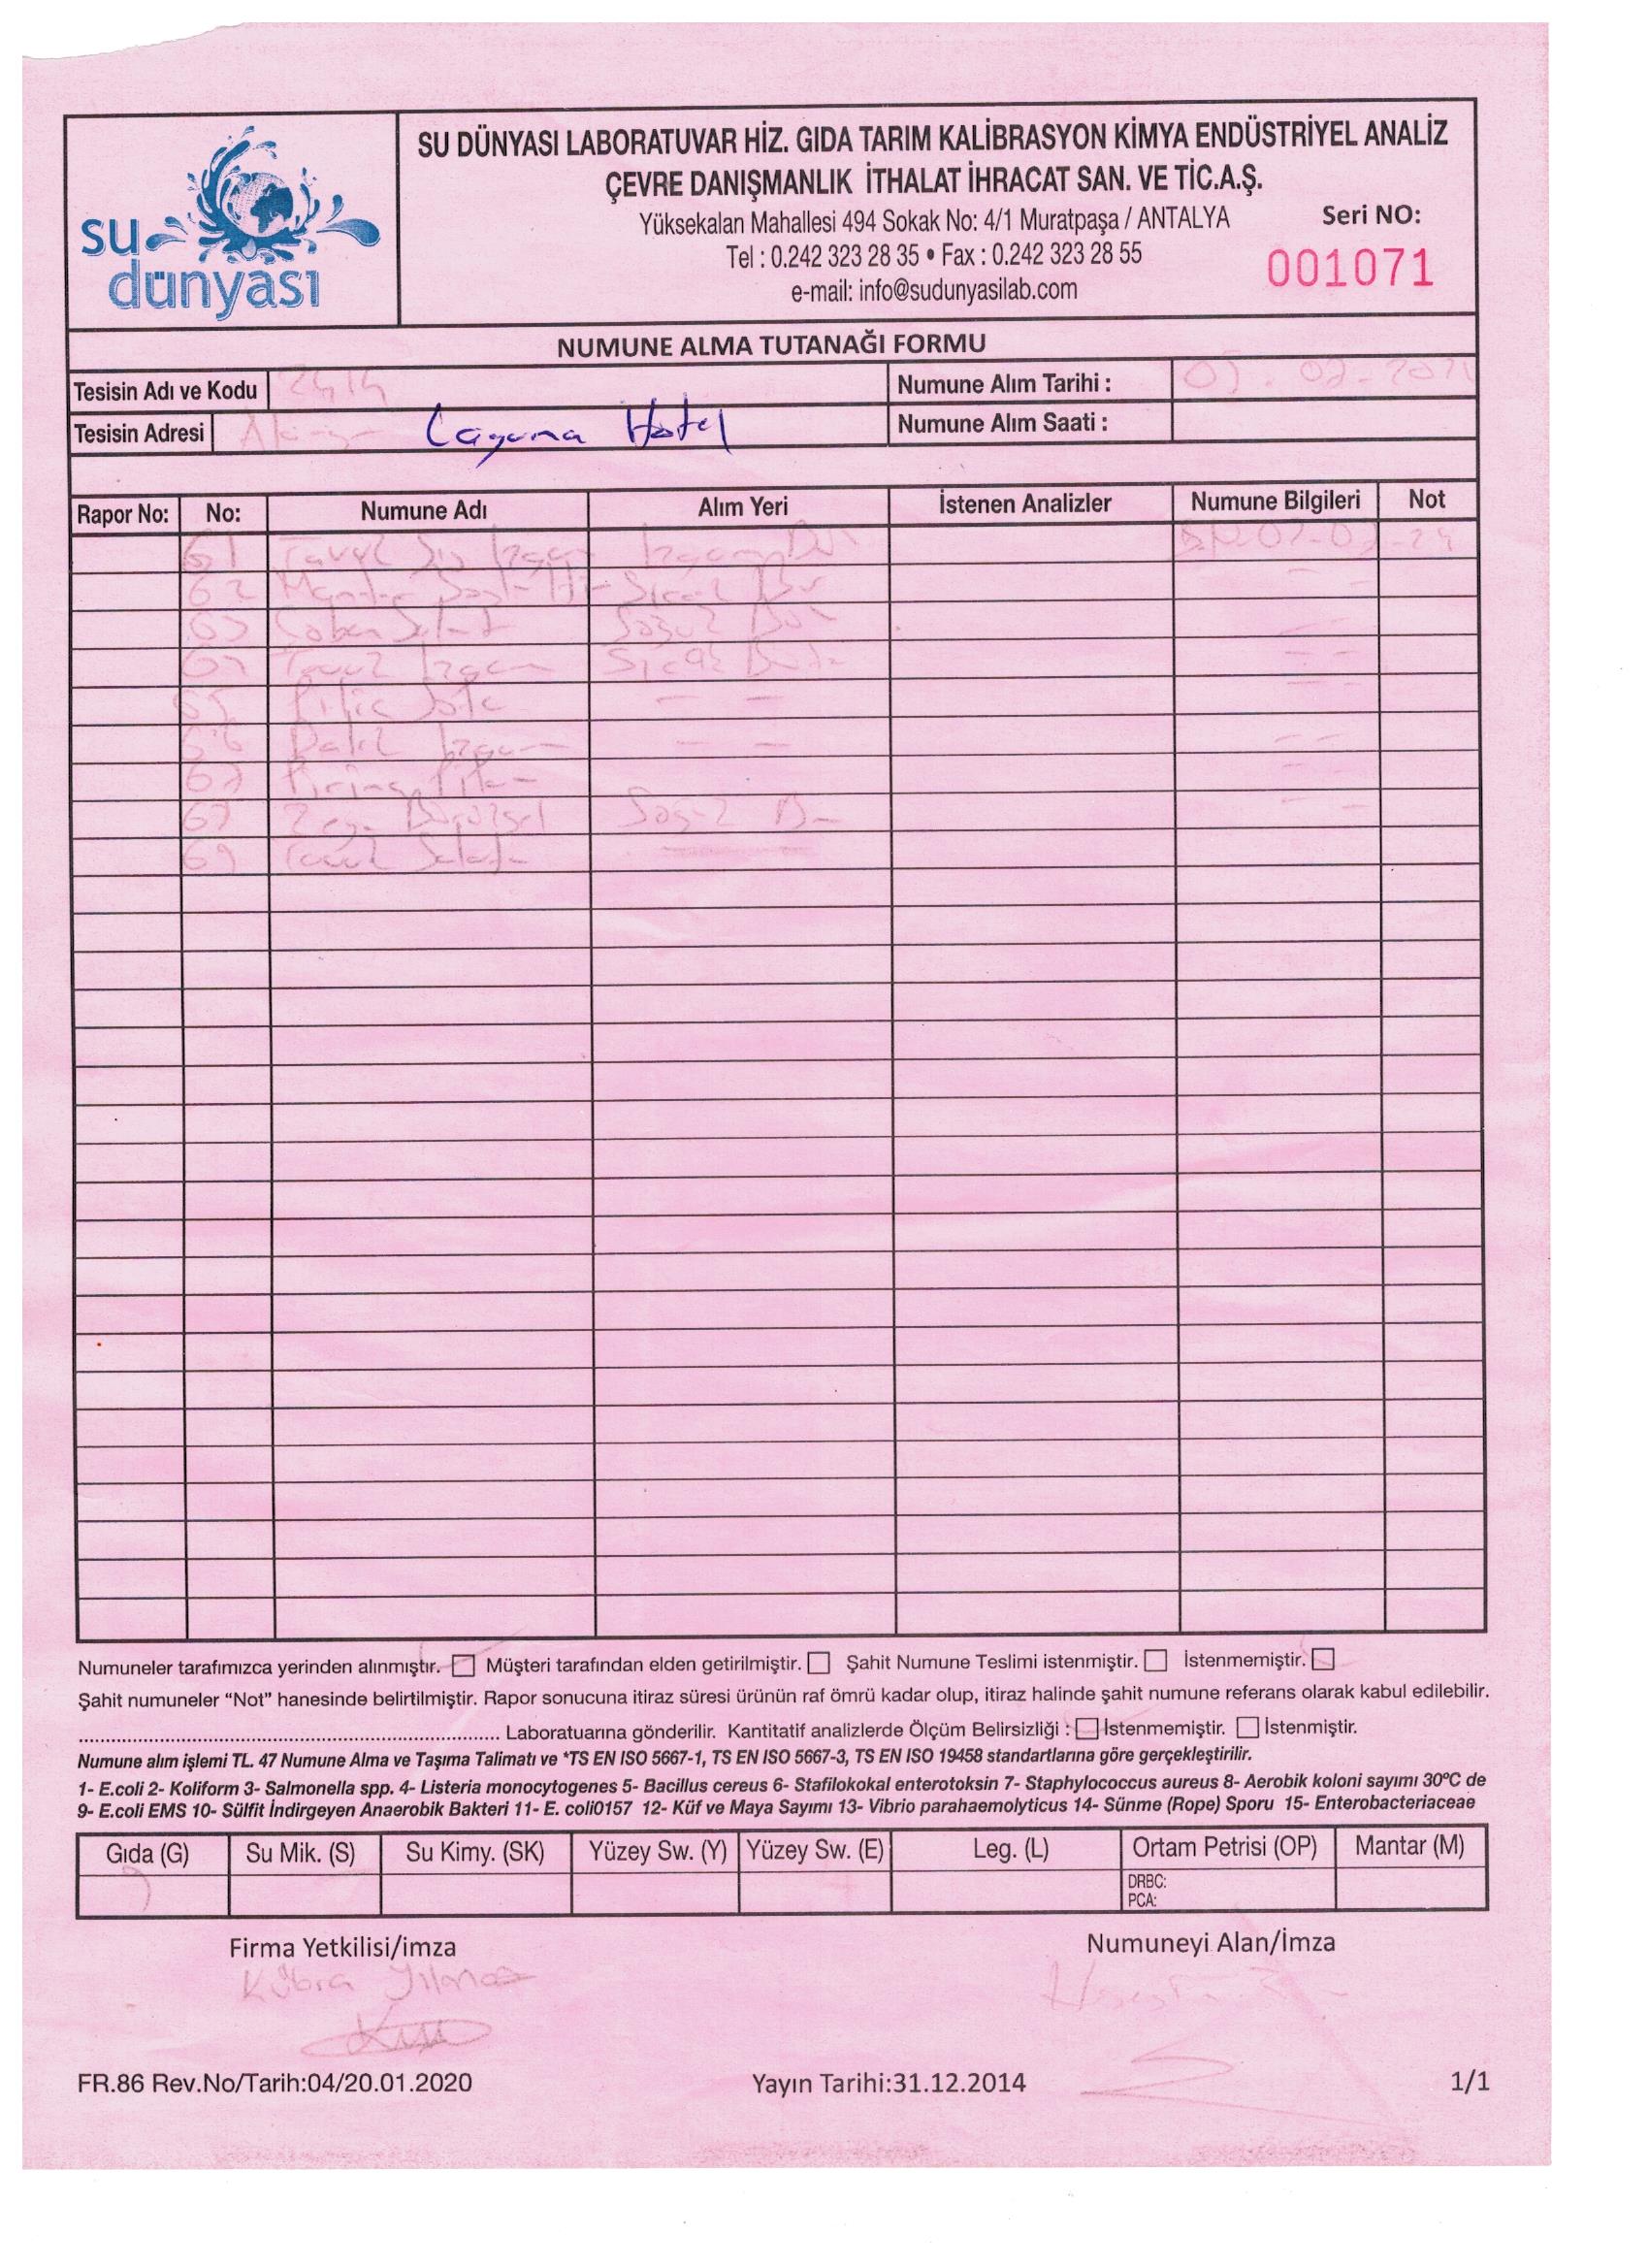 su dünyası
SU DÜNYASI LABORATUVAR HİZ. GIDA TARIM KALİBRASYON KİMYA ENDÜSTRİYEL ANALİZ
ÇEVRE DANIŞMANLIK İTHALAT İHRACAT SAN. VE TİC.A.Ş.
Yüksekalan Mahallesi 494 Sokak No: 4/1 Muratpaşa / ANTALYA
Tel : 0.242 323 28 35 • Fax : 0.242 323 28 55
e-mail: info@sudunyasilab.com
Seri NO:
001071
NUMUNE ALMA TUTANAĞI FORMU
Tesisin Adı ve Kodu 2414 Numune Alım Tarihi :
Tesisin Adresi Laguna Hotel Numune Alım Saati :
Rapor No: No: Numune Adı Alım Yeri İstenen Analizler Numune Bilgileri Not
61 Tavuk Şiş Izgara Izgara
62 Sıcak
63 Çoban Salata Soğuk
Tavuk Izgara Sıcak
65 Piliç Sote
Balık Izgara
67 Pirinç Pilavı
Soğuk
69 Tavuk Salata
Numuneler tarafımızca yerinden alınmıştır. Müşteri tarafından elden getirilmiştir. Şahit Numune Teslimi istenmiştir. İstenmemiştir.
Şahit numuneler “Not” hanesinde belirtilmiştir. Rapor sonucuna itiraz süresi ürünün raf ömrü kadar olup, itiraz halinde şahit numune referans olarak kabul edilebilir.
.................................................................. Laboratuarına gönderilir. Kantitatif analizlerde Ölçüm Belirsizliği : İstenmemiştir. İstenmiştir.
Numune alım işlemi TL. 47 Numune Alma ve Taşıma Talimatı ve *TS EN ISO 5667-1, TS EN ISO 5667-3, TS EN ISO 19458 standartlarına göre gerçekleştirilir.
1- E.coli 2- Koliform 3- Salmonella spp. 4- Listeria monocytogenes 5- Bacillus cereus 6- Stafilokokal enterotoksin 7- Staphylococcus aureus 8- Aerobik koloni sayımı 30ºC de
9- E.coli EMS 10- Sülfit İndirgeyen Anaerobik Bakteri 11- E. coli0157 12- Küf ve Maya Sayımı 13- Vibrio parahaemolyticus 14- Sünme (Rope) Sporu 15- Enterobacteriaceae
Gıda (G) Su Mik. (S) Su Kimy. (SK) Yüzey Sw. (Y) Yüzey Sw. (E) Leg. (L) Ortam Petrisi (OP) Mantar (M)
9 DRBC:
PCA:
Firma Yetkilisi/imza Numuneyi Alan/İmza
Kübra Yılmaz
FR.86 Rev.No/Tarih:04/20.01.2020 Yayın Tarihi:31.12.2014 1/1